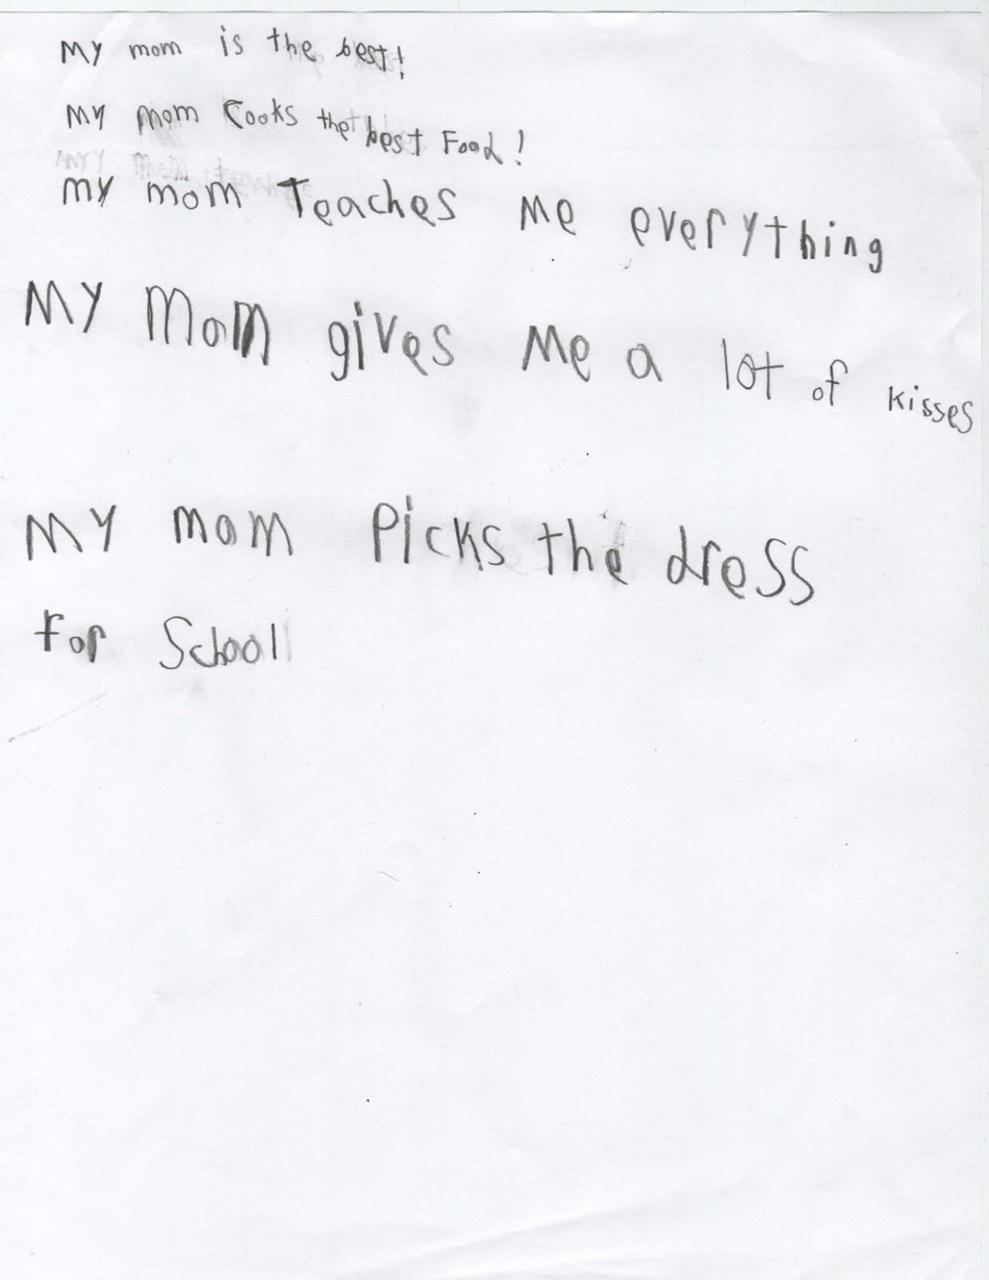 My mom is the best!
My mom Cooks the best Food!
my mom Teaches me everything
My Mom gives Me a lot of kisses
My mom Picks the dress
For School